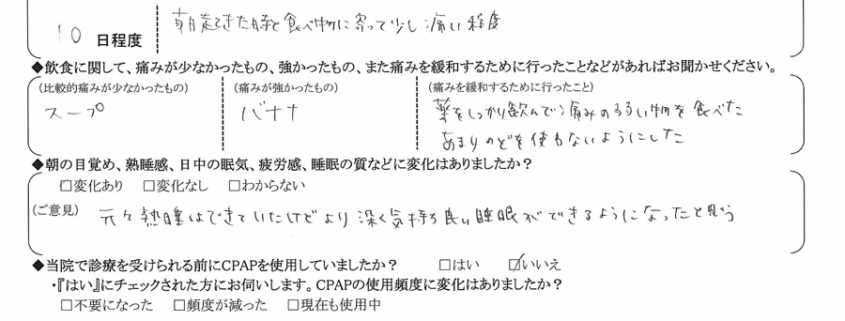 10 日程度 朝起きた時と食べ物に寄って少し痛い程度
◆飲食に関して、痛みが少なかったもの、強かったもの、また痛みを緩和するために行ったことなどがあればお聞かせください。
(比較的痛みが少なかったもの) (痛みが強かったもの) (痛みを緩和するために行ったこと)
スープ バナナ 薬をしっかり飲んでう痛みのるるい物を食べた
あまりのどを使わないようにした
◆朝の目覚め、熟睡感、日中の眠気、疲労感、睡眠の質などに変化はありましたか?
□変化あり □変化なし □わからない
(ご意見) 元々熟睡はできていたけどより深く気持ち良い睡眠ができるようになったと思う
◆当院で診療を受けられる前にCPAPを使用していましたか? □はい ☑いいえ
・『はい』にチェックされた方にお伺いします。CPAPの使用頻度に変化はありましたか?
□不要になった □頻度が減った □現在も使用中